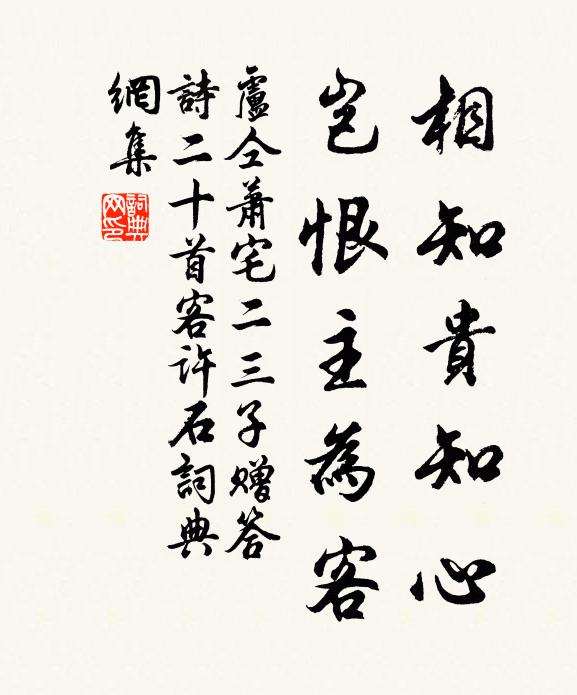 相知貴知心
豈恨主為客
盧仝蕭宅二三子贈答
詩二十首客許石詞典
網集
詞典
网印